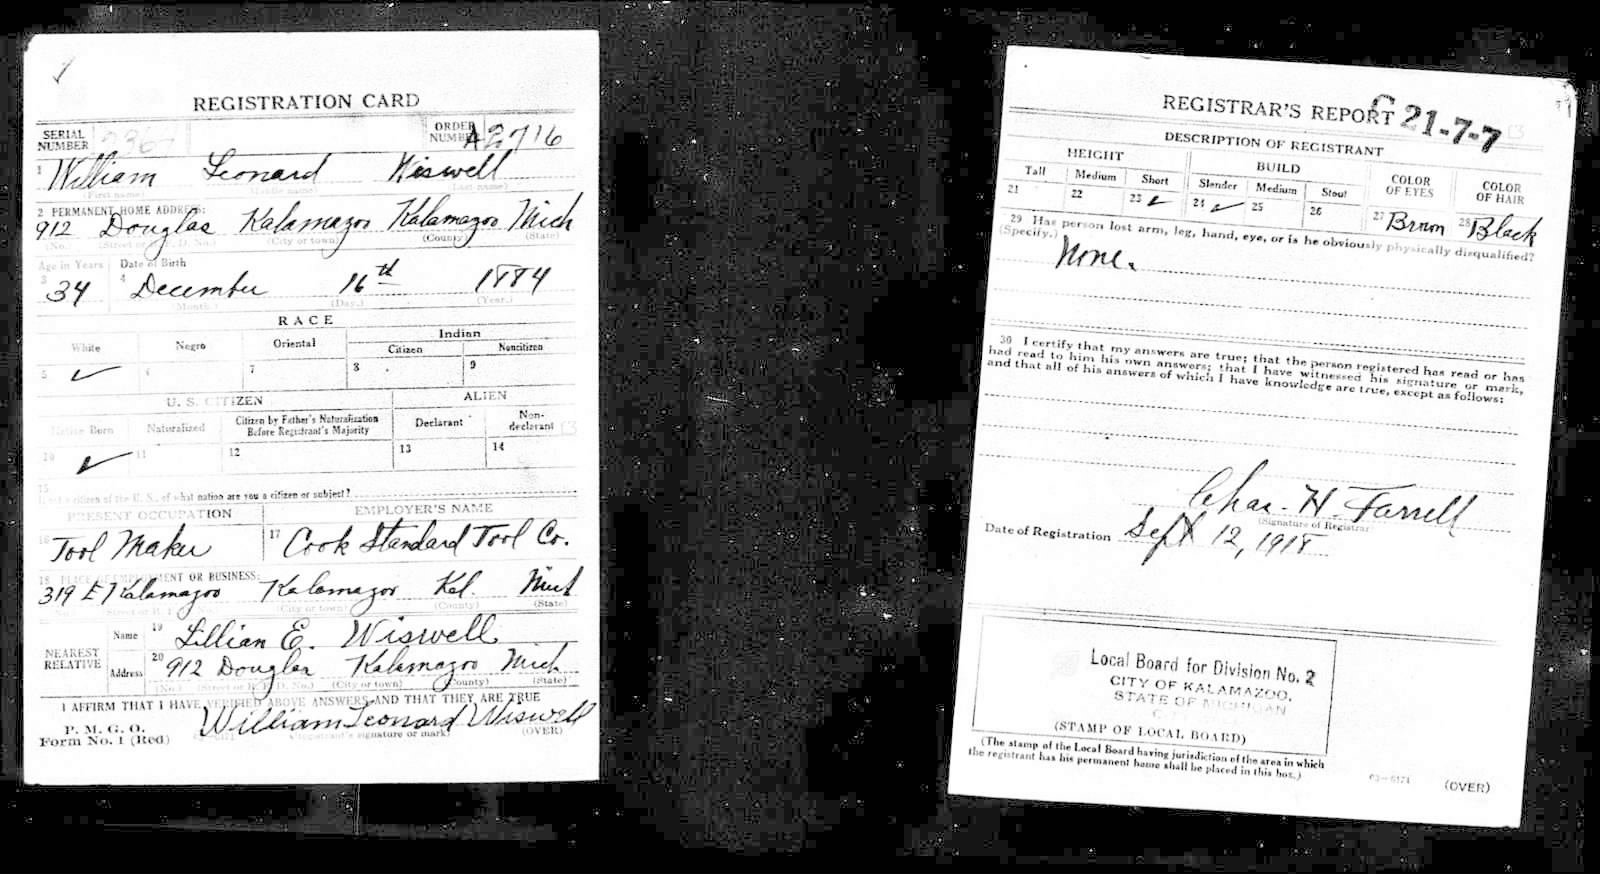 REGISTRATION CARD
SERIAL NUMBER
ORDER NUMBER A2716
1 William Leonard Wiswell
(First name) (Middle name) (Last name)
2 PERMANENT HOME ADDRESS:
912 Douglas Kalamazoo Kalamazoo Mich
(No.) (Street or R. F. D. No.) (City or town) (County) (State)
Age in Years Date of Birth
3 34 4 December 16th 1884
(Month.) (Day.) (Year.)
RACE
White Negro Oriental Indian
Citizen Noncitizen
5 ✓ 6 7 8 9
U. S. CITIZEN ALIEN
Native Born Naturalized Citizen by Father's Naturalization Before Registrant's Majority Declarant Non-declarant
10 ✓ 11 12 13 14
15
If not a citizen of the U. S., of what nation are you a citizen or subject?
PRESENT OCCUPATION EMPLOYER'S NAME
16 Tool Maker 17 Cook Standard Tool Co.
18 PLACE OF EMPLOYMENT OR BUSINESS:
319 E Kalamazoo Kalamazoo Kal. Mich
(No.) (Street or R. F. D. No.) (City or town) (County) (State)
NEAREST RELATIVE
Name 19 Lillian E. Wiswell
Address 20 912 Douglas Kalamazoo Mich
(No.) (Street or R. F. D. No.) (City or town) (County) (State)
I AFFIRM THAT I HAVE VERIFIED ABOVE ANSWERS AND THAT THEY ARE TRUE
P. M. G. O.
Form No. 1 (Red) William Leonard Wiswell
(Registrant's signature or mark) (OVER)
REGISTRAR'S REPORT C 21-7-7
DESCRIPTION OF REGISTRANT
HEIGHT BUILD COLOR OF EYES COLOR OF HAIR
Tall Medium Short Slender Medium Stout
21 22 23 ✓ 24 ✓ 25 26 27 Brown 28 Black
29 Has person lost arm, leg, hand, eye, or is he obviously physically disqualified?
(Specify.) None.
30 I certify that my answers are true; that the person registered has read or has
had read to him his own answers; that I have witnessed his signature or mark,
and that all of his answers of which I have knowledge are true, except as follows:
Chas. H. Farrell
(Signature of Registrar)
Date of Registration Sept 12, 1918
Local Board for Division No. 2
CITY OF KALAMAZOO,
STATE OF MICHIGAN
(STAMP OF LOCAL BOARD)
(The stamp of the Local Board having jurisdiction of the area in which
the registrant has his permanent home shall be placed in this box.)
03-6171 (OVER)